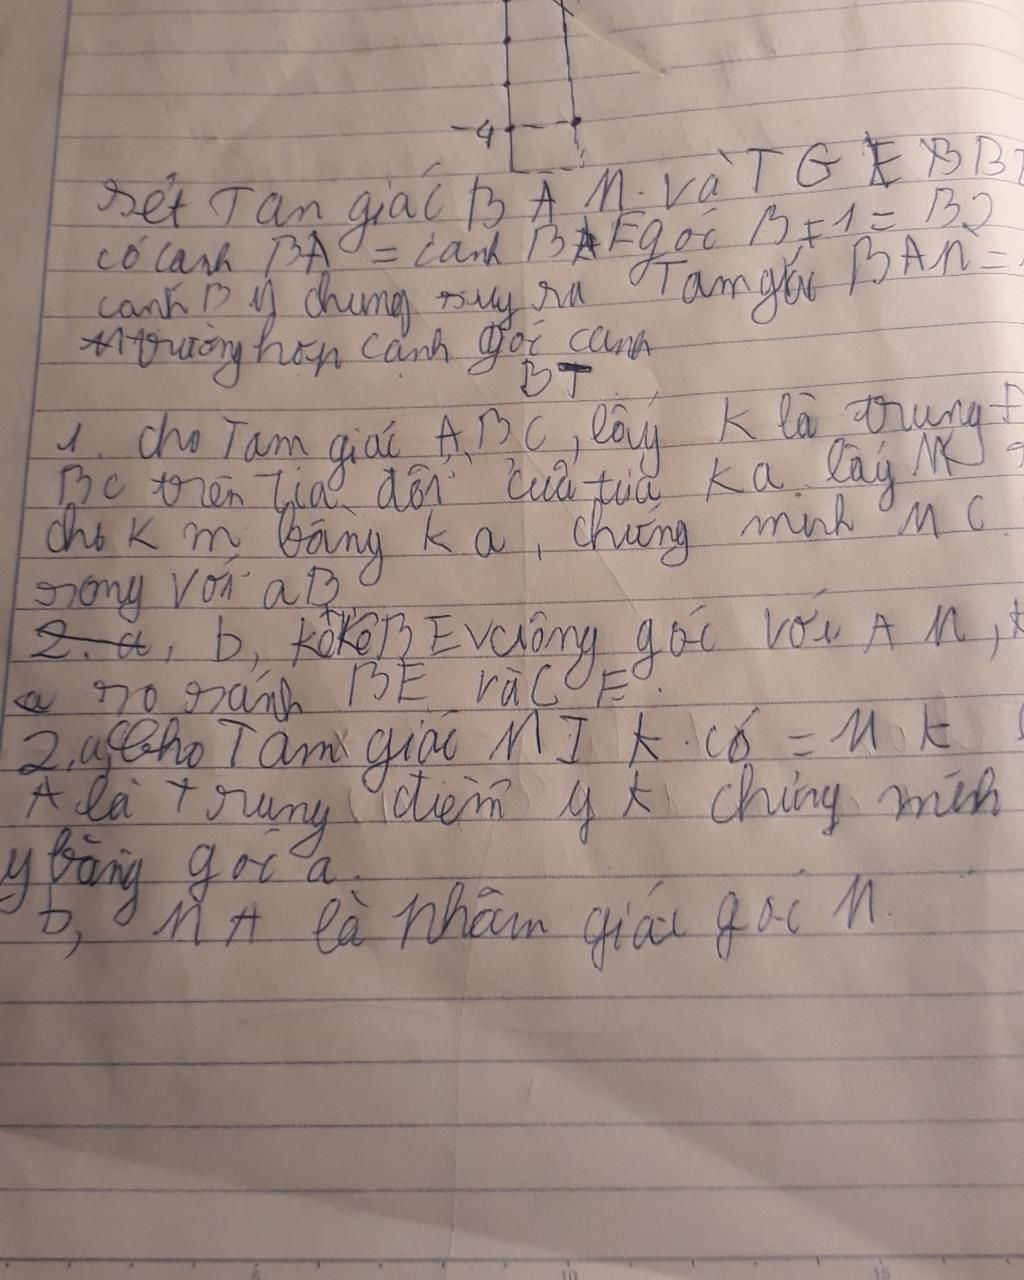 -4
xét Tam giác B A M. và T G E B B
có cạnh BA = cạnh B E góc B 1 = B2
cạnh B chung suy ra Tam giác BAM =
trường hợp cạnh góc cạnh
BT
1. cho Tam giác A.BC, lấy K là trung
BC trên tia đối của tia Ka. lấy M
cho K m bằng k a, chứng minh M C
song với aB
2. a, b, kẻ BE vuông góc với A M,
a so sánh BE và C F.
2, a, Cho Tam giác M I K. có = M K
A là trung điểm y k chứng minh
y bằng góc a.
b, M A là phâm giác góc M.
5 10 15